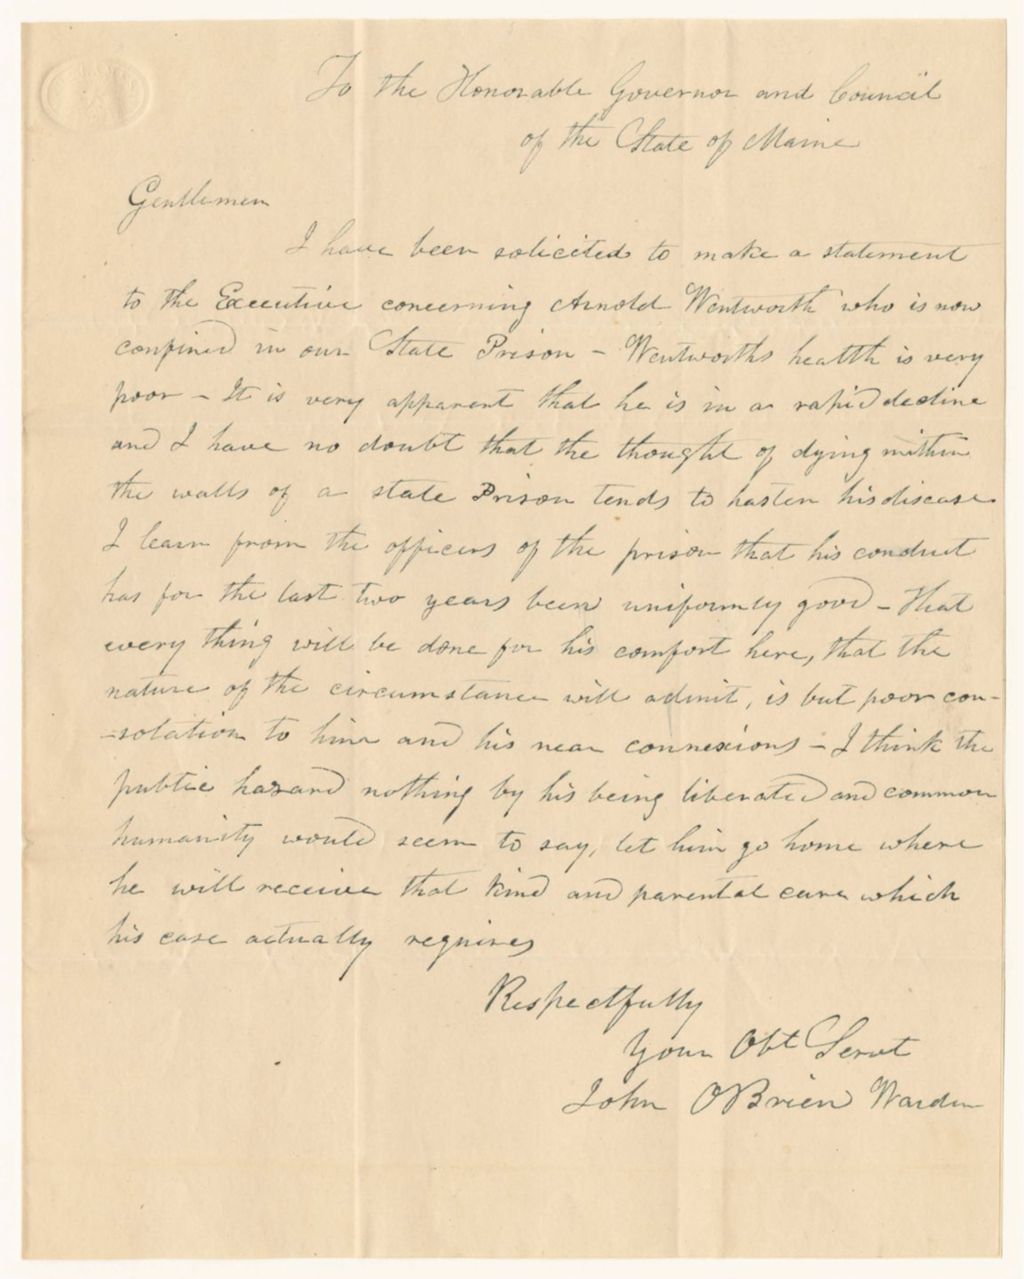 To the Honorable Governor and Council
of the State of Maine
Gentlemen
I have been solicited to make a statement
to the Executive concerning Arnold Wentworth who is now
confined in our State Prison – Wentworths health is very
poor – It is very apparent that he is in a rapid decline
and I have no doubt that the thought of dying within
the walls of a state Prison tends to hasten his disease
I learn from the officers of the prison that his conduct
has for the last two years been uniformly good – that
every thing will be done for his comfort here, that the
nature of the circumstance will admit, is but poor con-
-solation to him and his near connexions – I think the
public hazard nothing by his being liberated and common
humanity would seem to say, let him go home where
he will receive that kind and parental care which
his case actually requires
Respectfully
Your Obt Servt
John OBrien Warden